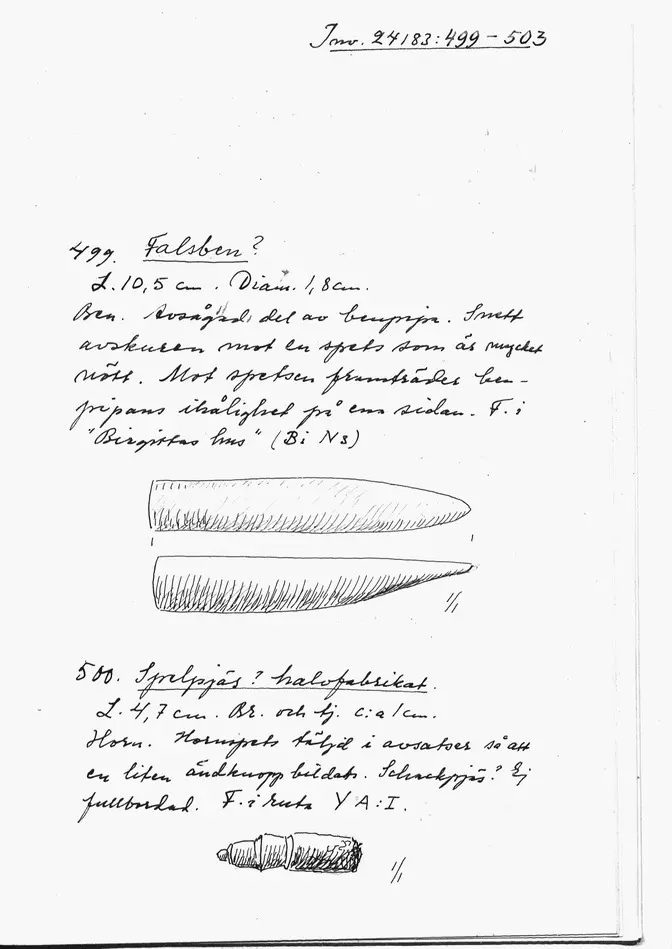 Inv. 24183:499-503
499. Falsben?
L. 10,5 cm. Diam. 1,8 cm.
Ben. Avsågad del av benpipa. Snett
avskuren mot en spets som är mycket
nött. Mot spetsen framträder ben-
pipans ihålighet på ena sidan. F. i
"Birgittas hus" (Bi N s)
1/1
500. Spelpjäs? halvfabrikat.
L. 4,7 cm. Br. och tj. c:a 1 cm.
Horn. Hornspets täljd i avsatser så att
en liten ändknopp bildats. Schackpjäs? Ej
fullbordad. F. i ruta Y A:I.
1/1